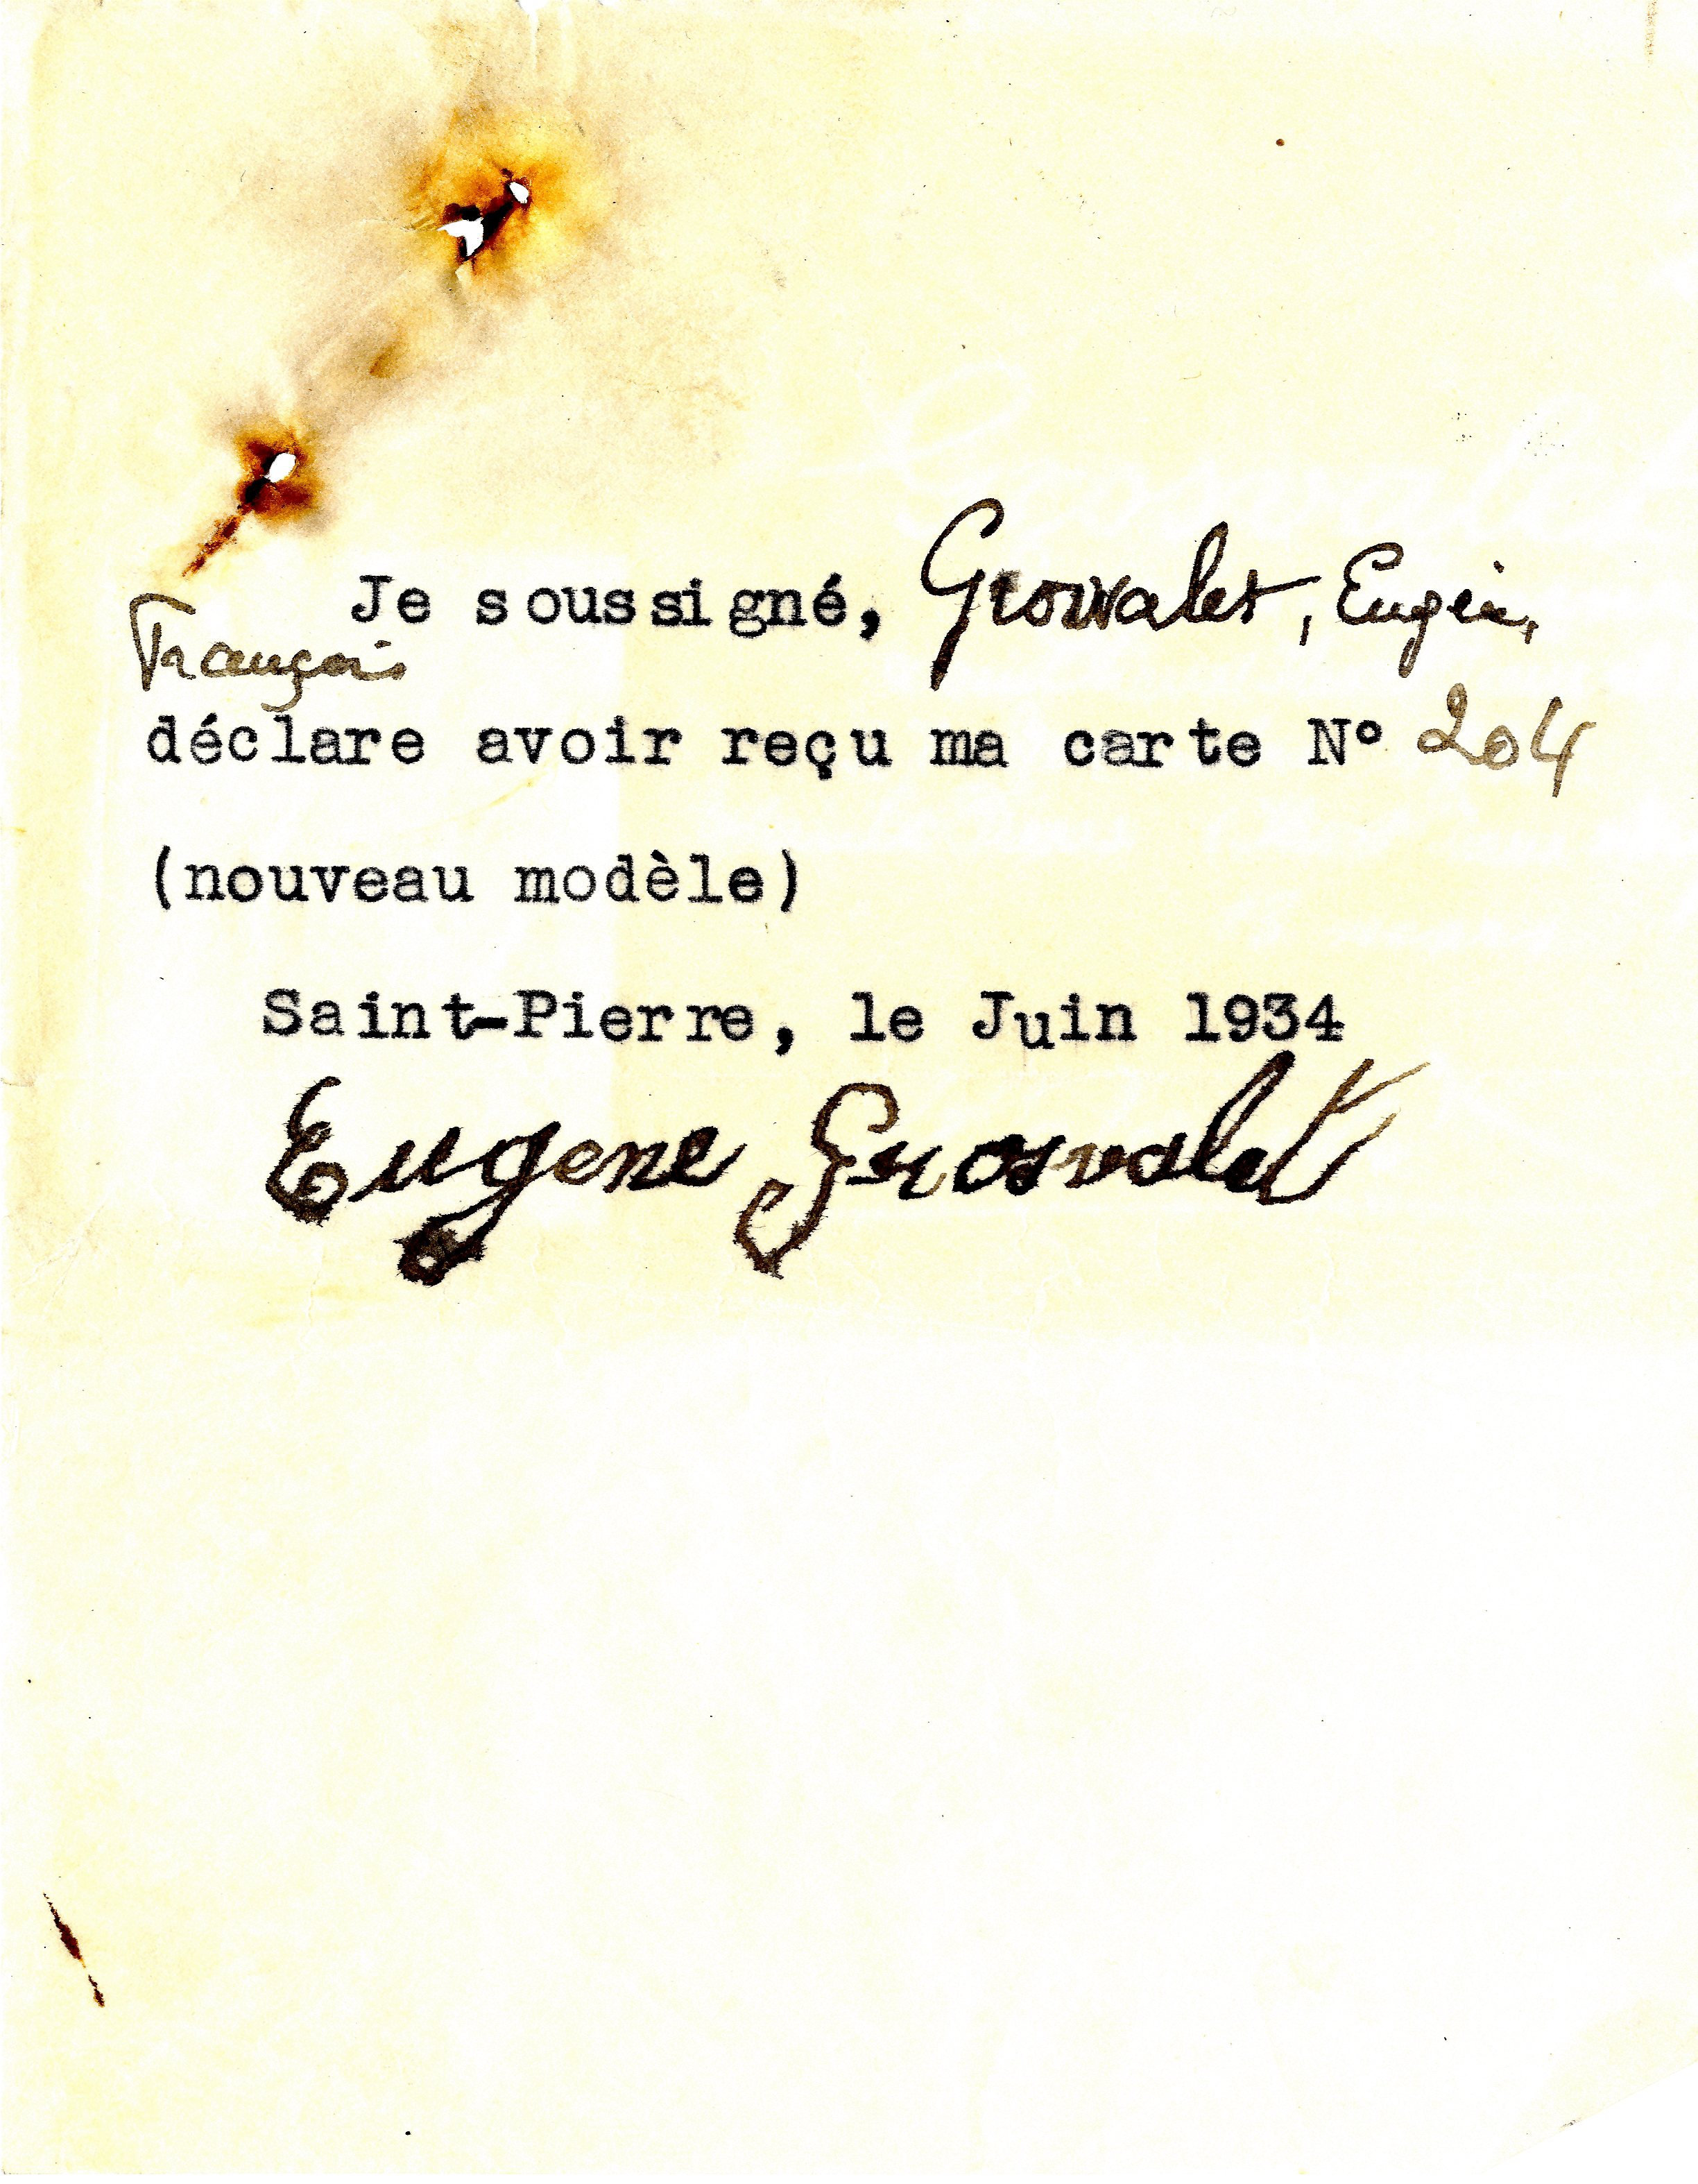 Je soussigné, Grosvalet, Eugène,
François
déclare avoir reçu ma carte N° 204
(nouveau modèle)
Saint-Pierre, le Juin 1934
Eugene Grosvalet